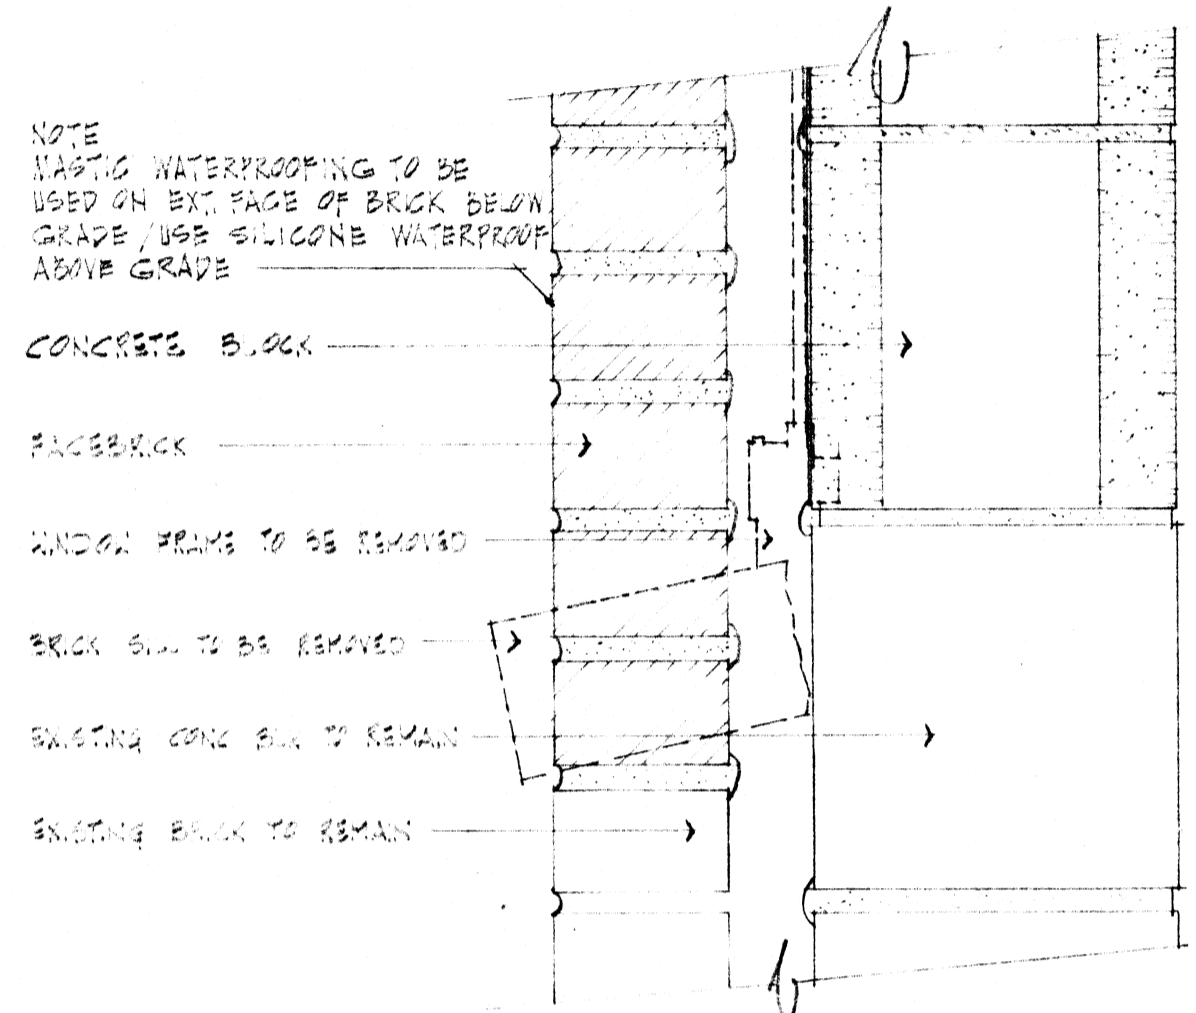 NOTE
MASTIC WATERPROOFING TO BE
USED ON EXT. FACE OF BRICK BELOW
GRADE / USE SILICONE WATERPROOF
ABOVE GRADE
CONCRETE BLOCK
FACEBRICK
WINDOW FRAME TO BE REMOVED
BRICK SILL TO BE REMOVED
EXISTING CONC BLK TO REMAIN
EXISTING BRICK TO REMAIN